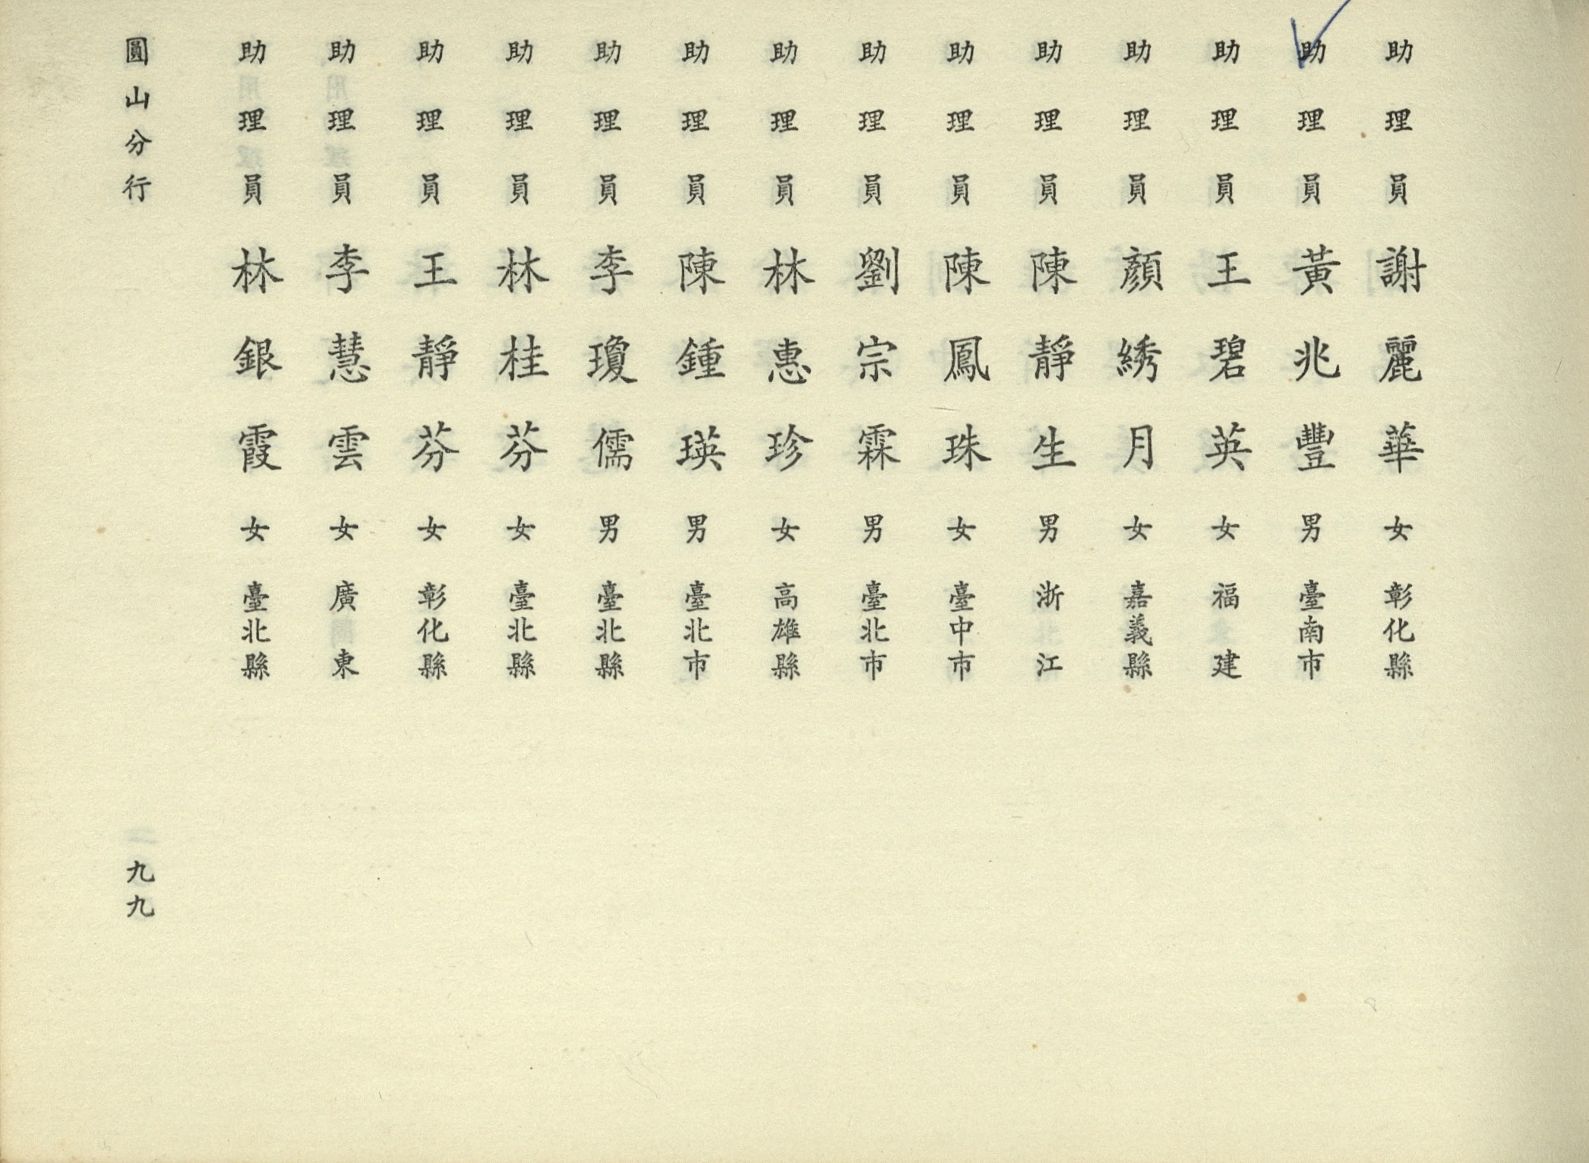 助理員 謝麗華 女 彰化縣
助理員 黃兆豐 男 臺南市
助理員 王碧英 女 福建
助理員 顏綉月 女 嘉義縣
助理員 陳靜生 男 浙江
助理員 陳鳳珠 女 臺中市
助理員 劉宗霖 男 臺北市
助理員 林惠珍 女 高雄縣
助理員 陳鍾瑛 男 臺北市
助理員 李瓊儒 男 臺北縣
助理員 林桂芬 女 臺北縣
助理員 王靜芬 女 彰化縣
助理員 李慧雲 女 廣東
助理員 林銀霞 女 臺北縣
圓山分行
九九